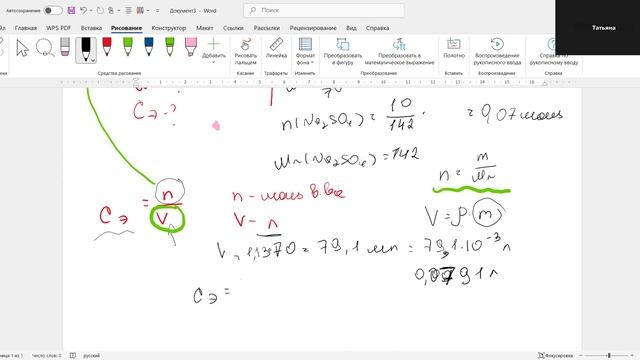 Документ3 - Word
Поиск
Татьяна
Файл Главная Вставка Рисование Конструктор Макет Ссылки Рассылки Рецензирование Вид Справка
Добавить
Рисовать пальцем
Преобразовать в фигуру
Преобразовать в математическое выражение
Полотно
Воспроизведение рукописного ввода
Справка по рукописного ввода
Средства рисования
Касание
Трафареты
Преобразование
Вставка
Воспроизведение
Справка
Cэ - ?
n(Na2SO4) = 10/142 = 0,07 моль
Mr(Na2SO4) = 142
n = m/Mr
Cэ = n/V
n - моль в-ва
V - л
V = ρ · m
V = 1,13 70 = 79,1 мл = 79,1·10-3 л
0,0791 л
Cэ =
Страница 1 из 1 Число слов: 0 русский
Фокусировка